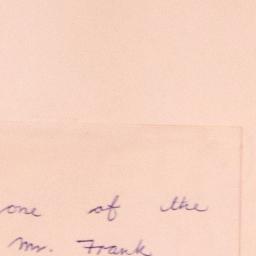 one of the
Mr. Frank